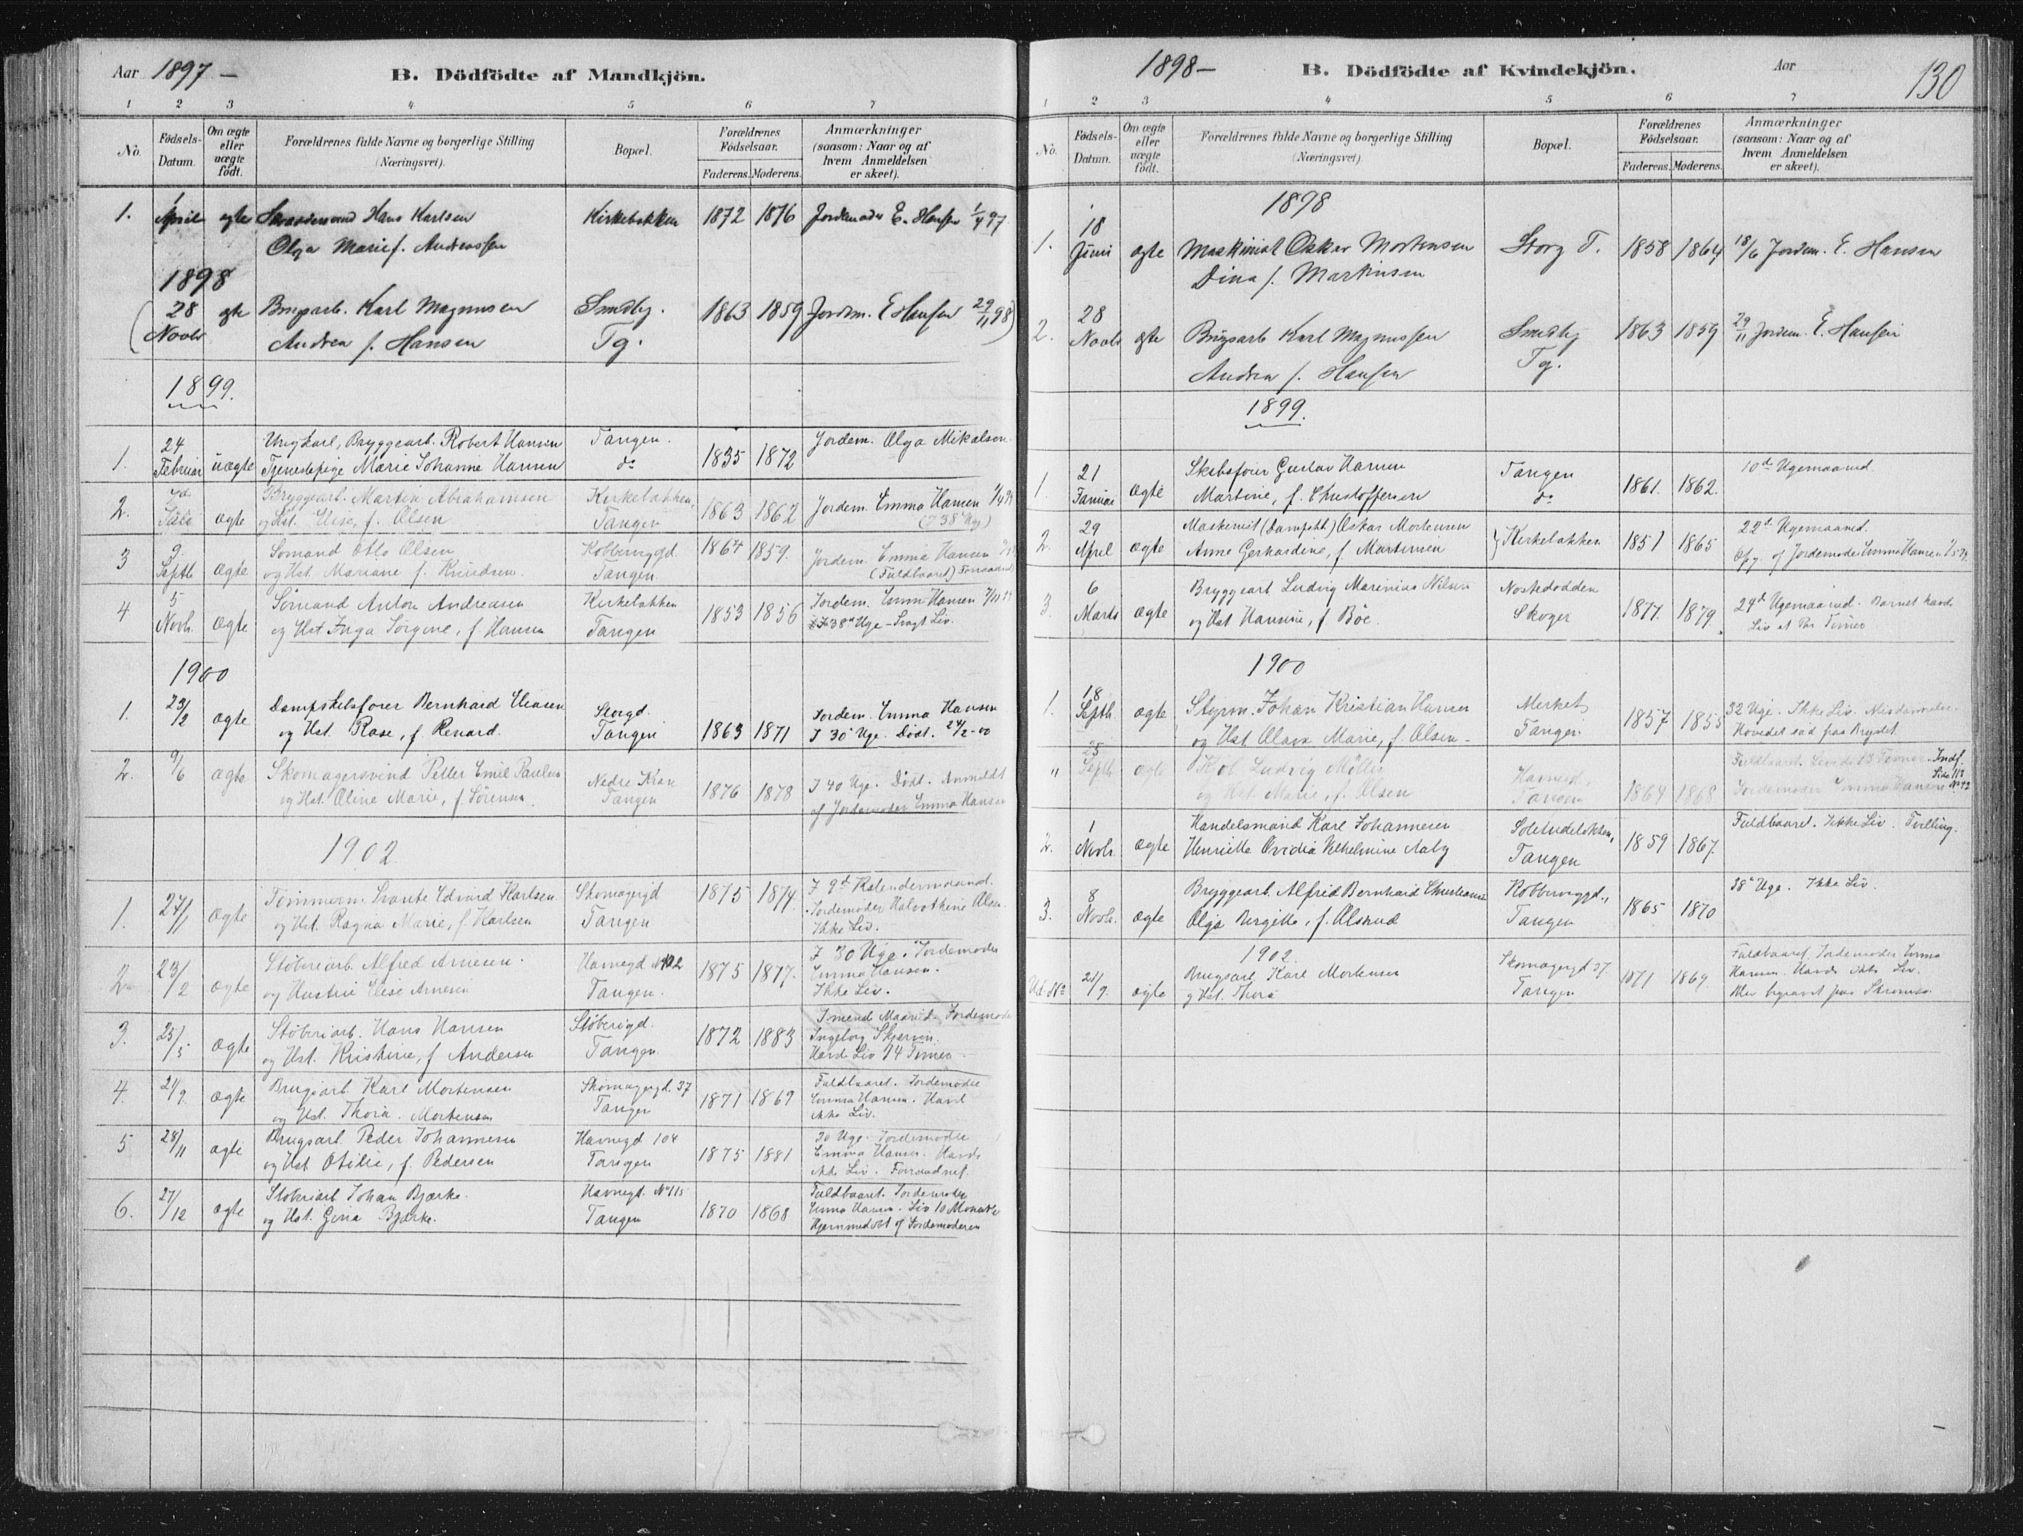 Aar 1897 –
B. Dödfödte af Mandkjön.
1 2 3 4 5 6 7
No.
Födsels-Datum.
Om ægte eller uægte födt.
Forældrenes fulde Navne og borgerlige Stilling (Næringsvei).
Bopæl.
Forældrenes Födselsaar.
Faderens. Moderens.
Anmærkninger (saasom: Naar og af hvem Anmeldelsen er skeet).
1. 1 April ægte Hans Karlsen Kirkebakken 1872 1876 Jordemoder E. Hansen 1/4 97
Olga Marie f. Andreassen
1898
(28 Novbr ægte Brugsarb. Karl Magnusen Smedby. 1863 1859 Jordem. E Hansen 29/11 98)
Andrea f. Hansen Tg.
1899.
1. 24 Februar uægte Ungkarl, Bryggearb. Robert Hansen Tangen. 1835 1872 Jordem. Olga Mikalsen.
Tjenestepige Marie Johanne Hansen do
2. ægte Bryggearb. Martin Abrahamsen Kirkebakken, 1863 1862 Jordem. Emma Hansen
og Hst. Elise, f. Olsen Tangen (I 38 Uge)
3 9. Septb ægte Sömand Otto Olsen Kobbervigd 1864 1859. Jordem. Emma Hansen
og Hst. Mariane f. Knudsen. Tangen. (Fuldbaaret)
4 5 Novb. ægte Sömand Anton Andreasen Kirkebakken 1853 1856 Jordem. Emma Hansen
og Hst Inga Sorgine, f. Hansen Tangen I 38te Uge – Svagt Liv.
1900
1. 23/2 ægte Dampskibsfører Bernhard Eliasen Storgd. 1863 1871 Jordem. Emma Hansen
og Hst. Rose, f. Renard. Tangen I 30 Uge. Dödt. 24/2-00
2. 9/6 ægte Skomagersvend Petter Emil Paulsen Nedre Kran 1876 1878 I 40 Uge. Dödt. Anmeldt
og Hst. Oline Marie, f. Sörensen. Tangen af Jordemoder Emma Hansen
1902
1. 27/1 ægte Tömmerm. Svante Edvard Karlsen Skomagergd 1875 1874. I 9d Kalendermaaned.
og Hst. Ragna Marie, f. Karlsen Tangen Jordemoder Halvothine Olsen
Ikke Liv.
2 23/2 ægte Støberiarb. Alfred Arnesen. Havnegd No 102 1875 1877. I 30 Uge. Jordemoder
og Hustru Elise Arnesen Tangen. Emma Hansen.
Ikke Liv.
3. 25/5 ægte Støberiarb. Hans Hansen Støberigd. 1872 1883 Jordemoder
og Hst. Kristine, f Andersen Tangen Ingeborg Skjerven.
Havde Liv 24 Timer
4. 21/9. ægte Brugsarb Karl Mortensen Skomagergd. 37 1871 1869 Fuldbaaret. Jordemoder
og Hst. Thora. Mortensen Tangen Emma Hansen. Havde
ikke Liv.
5 28/11 ægte Brugsarb Peder Johannesen Havnegd 104 1875 1881 30 Uge. Jordemoder
og Hst Otilie, f. Pedersen Tangen Emma Hansen. Havde
ikke Liv.
6. 27/12 ægte Støberiarb Johan Bjerke. Havnegd. No 115 1870 1868 Fuldbaaret. Jordemoder
og Hst. Gina Bjerke. Tangen Emma Hansen. Liv 10 Minutter
Hjemmedöbt af Jordemoderen
1898 –
B. Dödfödte af Kvindekjön.
Aar
130
1 2 3 4 5 6 7
No.
Födsels-Datum.
Om ægte eller uægte födt.
Forældrenes fulde Navne og borgerlige Stilling (Næringsvei).
Bopæl.
Forældrenes Födselsaar.
Faderens. Moderens.
Anmærkninger (saasom: Naar og af hvem Anmeldelsen er skeet).
1898
1. 18 Juni ægte Maskinist Oskar Mortensen Storg T. 1858 1864 18/6 Jordem. E. Hansen
Dina f. Martinsen
2. 28 Novbr ægte Brugsarb Karl Magnussen Smedby 1863 1859 29/11 Jordem. E. Hansen
Andrea f. Hansen Tg.
1899.
1. 21 Januar ægte Skibsfører Gustav Hansen Tangen 1861. 1862. 10de Ugemaaned
Martine, f. Christoffersen do
2. 29 April ægte Maskinist (Dampskb) Oskar Mortensen Kirkebakken 1851 1865 22d Ugemaaned.
Anne Gerhardine, f Martinsen Opg. af Jordemoder Emma Hansen
3 6 Marts ægte Bryggearb Ludvig Marinius Nilsen Nostedodden 1877. 1879. 29d Ugemaaned. Barnet havde
og Hst Hansine, f Böe. Skoger Liv et Par Timer
1900
1. 18 Septb. ægte Styrm. Johan Kristian Hansen Merket 1857 1855 32 Uge. Ikke Liv.
og Hst Olava Marie, f. Olsen – Tangen Hovedet sad paa Brystet
" 25 Septb ægte Ludvig Möller Havnegd. 1864 1868 Fuldbaaret. Levede 13 Timer. Indf.
og Hst. Marie, f. Olsen Tangen Jordemoder Emma Hansen Side 118
2. 1 Novb. ægte Handelsmand Karl Johannesen 1859 1867. Fuldbaaret. Ikke Liv. Tvilling.
Henriette Ovidia Vilhelmine Aaby Tangen
3. 8 Novb. ægte Bryggearb Alfred Bernhard Christiansen Kobbervigd., 1865 1870 38te Uge. Ikke Liv.
Olga Birgitte, f. Olsrud Tangen
1902.
21/9. ægte Brugsarb Karl Mortensen Skomagergd 37. 1871 1869. Fuldbaaret. Jordemoder Emma
og Hst. Thora Tangen Hansen. Havde ikke Liv.
Blev begravet paa Strømsö